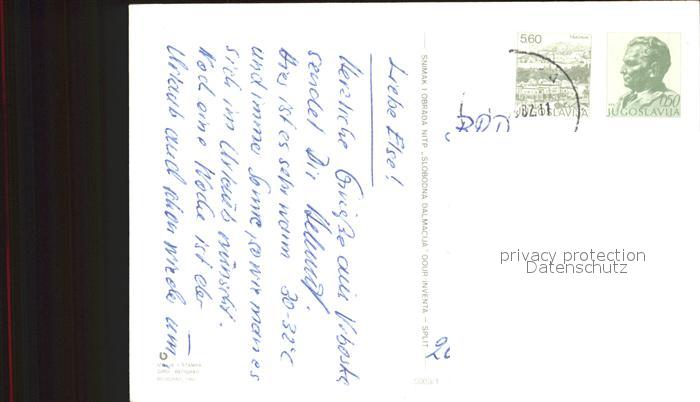 Liebe Else!
Herzliche Grüße aus Vrboska
sendet Dir Helmut.
Hier ist es sehr warm 30-32°C
und immer Sonne, so wie man es
sich im Urlaub wünscht.
Noch eine Woche ist der
Urlaub und schon wieder um.
SNIMAK I OBRADA NITP „SLOBODNA DALMACIJA" OOUR INVENTA — SPLIT
5.60
JUGOSLAVIJA
0.50
JUGOSLAVIJA
privacy protection
Datenschutz